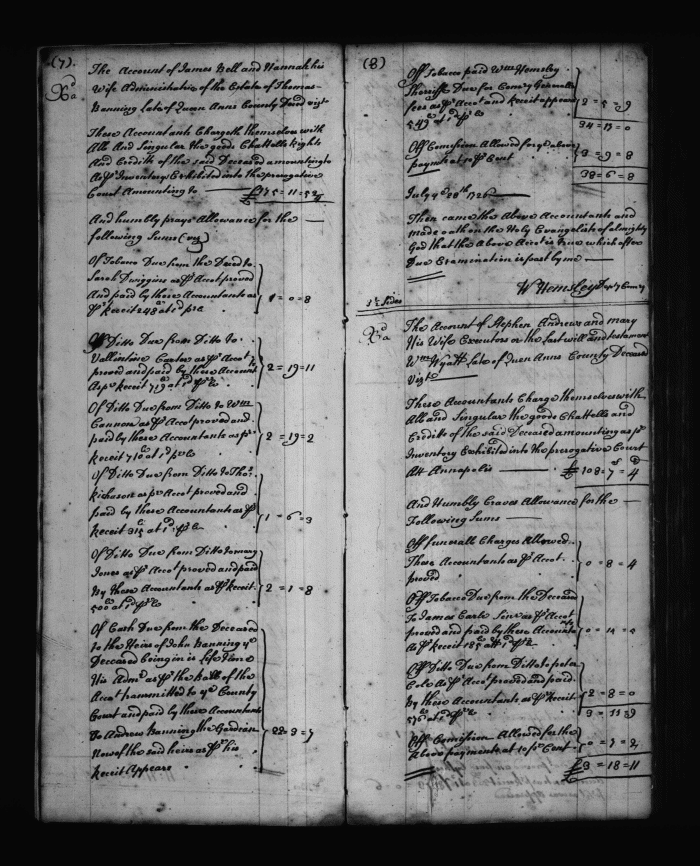 (7).
The Account of James Bell and Hannah his
Wife Administratrix of the Estate of Thomas
Banning Late of Queen Anns County Deced vizt
These Accountants Chargeth themselves with
All And Singular the goods Chattells Rights
And Credits of the said Deceased amounting to
As pr Inventory Exhibited into the prerogative
Court Amounting to £175=11=5¾
And humbly prays Allowance for the
following Sums (viz)
Of Tobacco Due from the Deced to
Sarah Dwiggins as pr Accot proved
And paid by these Accountants as
pr receit 248 at 1d pr lb 1=0=8
Of Ditto Due from Ditto to
Vallintine Carter as pr Accot
proved and paid by these Account
As pr receit 719 at 1d pr lb 2=19=11
Of Ditto Due from Ditto to Wm
Cannon as pr Accot proved and
paid by these Accountants as pr
receit 710 at 1d pr lb 2=19=2
Of Ditto Due from Ditto to Thos
as pr Accot proved and
paid by these Accountants as pr
receit 315 at 1d pr lb 1=6=3
Of Ditto Due from Ditto to mary
Jones as pr Accot proved and paid
By these Accountants as pr receit
500 at 1d pr lb 2=1=8
Of Cash Due from the Deceased
to the Heirs of John Banning ye
Deceased being in is Life time
His Admr as pr the ball of the
Accot transmitted to ye County
Court and paid by these Accountants
To Andrew Banning the Gardian
Now of the said heirs as pr his
Receit Appears 22=3=7
(8)
Off Tobacco paid Wm Hemsley
Sheriffe Due for Comry Generalls
fees as pr Accot and receit appears
549 at 1d pr lb 2=5=9
34=13=0
Off Comission Allowed for ye above
paymts at 10 pr Cent 3=9=8
38=6=8
July ye 28th 1726
Then came the Above Accountants and
made oath on the Holy Evangelists of almighty
God that the Above Accot is true which after
Due Examination is past by me
W Hemsley Depty Comry
The Account of Stephen Andrews and mary
His Wife Executors or the last will and testament
Wm Wyatt Late of Queen Anns County Deceased
Vizt
These Accountants Charge themselves with
All and Singular the goods Chattells and
Credits of the said Deceased amounting as pr
Inventory Exhibited into the prerogative Court
Att Annapolis £108=7=4
And Humbly Craves Allowance for the
Following Sums
Off funerall Charges Allowed
These Accountants as pr Accot
proved 0=8=4
Off Tobacco Due from the Deceased
To James Earle Senr as pr Accot
proved and paid by these Accounta
As pr receit 185 att 1d pr lb 0=15=5
Off Ditto Due from Ditto to peter
Cole As pr Accot proved and paid
By these Accountants as pr Receit
576 at 1d pr lb 2=8=0
3=11=9
Off Comission Allowed for the
Above payments at 10 pr Cent 0=7=2
£3=18=11